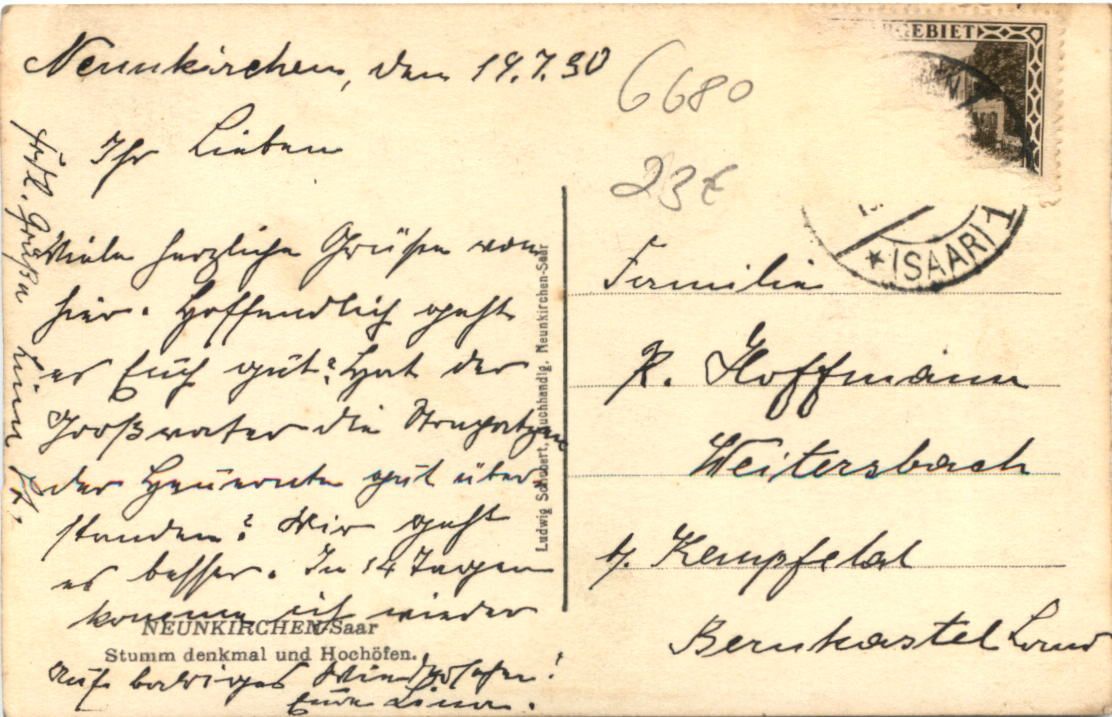 Neunkirchen, den 19.7.30
Ihr Lieben
Viele herzliche Grüße von
hier. Hoffendlich geht
es Euch gut? Hat der
Großvater die Strapatzen
der Heuernte gut über
standen? Mir geht
es besser. In 14 Tagen
komme ich wieder
auf baldiges Wiedersehen!
Eure Lina.
NEUNKIRCHEN-Saar
Stumm denkmal und Hochöfen.
Ludwig Schubert, Buchhandlg. Neunkirchen-Saar
6680
23€
GEBIET
(SAAR) 1
Familie
R. Hoffmann
Weitersbach
b/. Kempfeld
Bernkastel Land